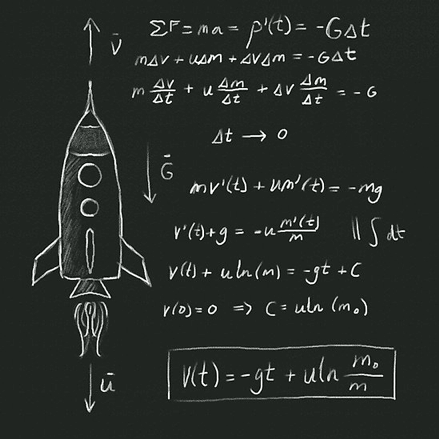 v̄
ΣF = ma = p'(t) = -GΔt
mΔv + uΔm + ΔvΔm = -GΔt
m Δv/Δt + u Δm/Δt + Δv Δm/Δt = -G
Δt → 0
Ḡ
mv'(t) + um'(t) = -mg
v'(t)+g = -u m'(t)/m || ∫ dt
v(t) + uln(m) = -gt + C
v(0)=0 => C = uln(m₀)
ū
v(t) = -gt + uln m₀/m